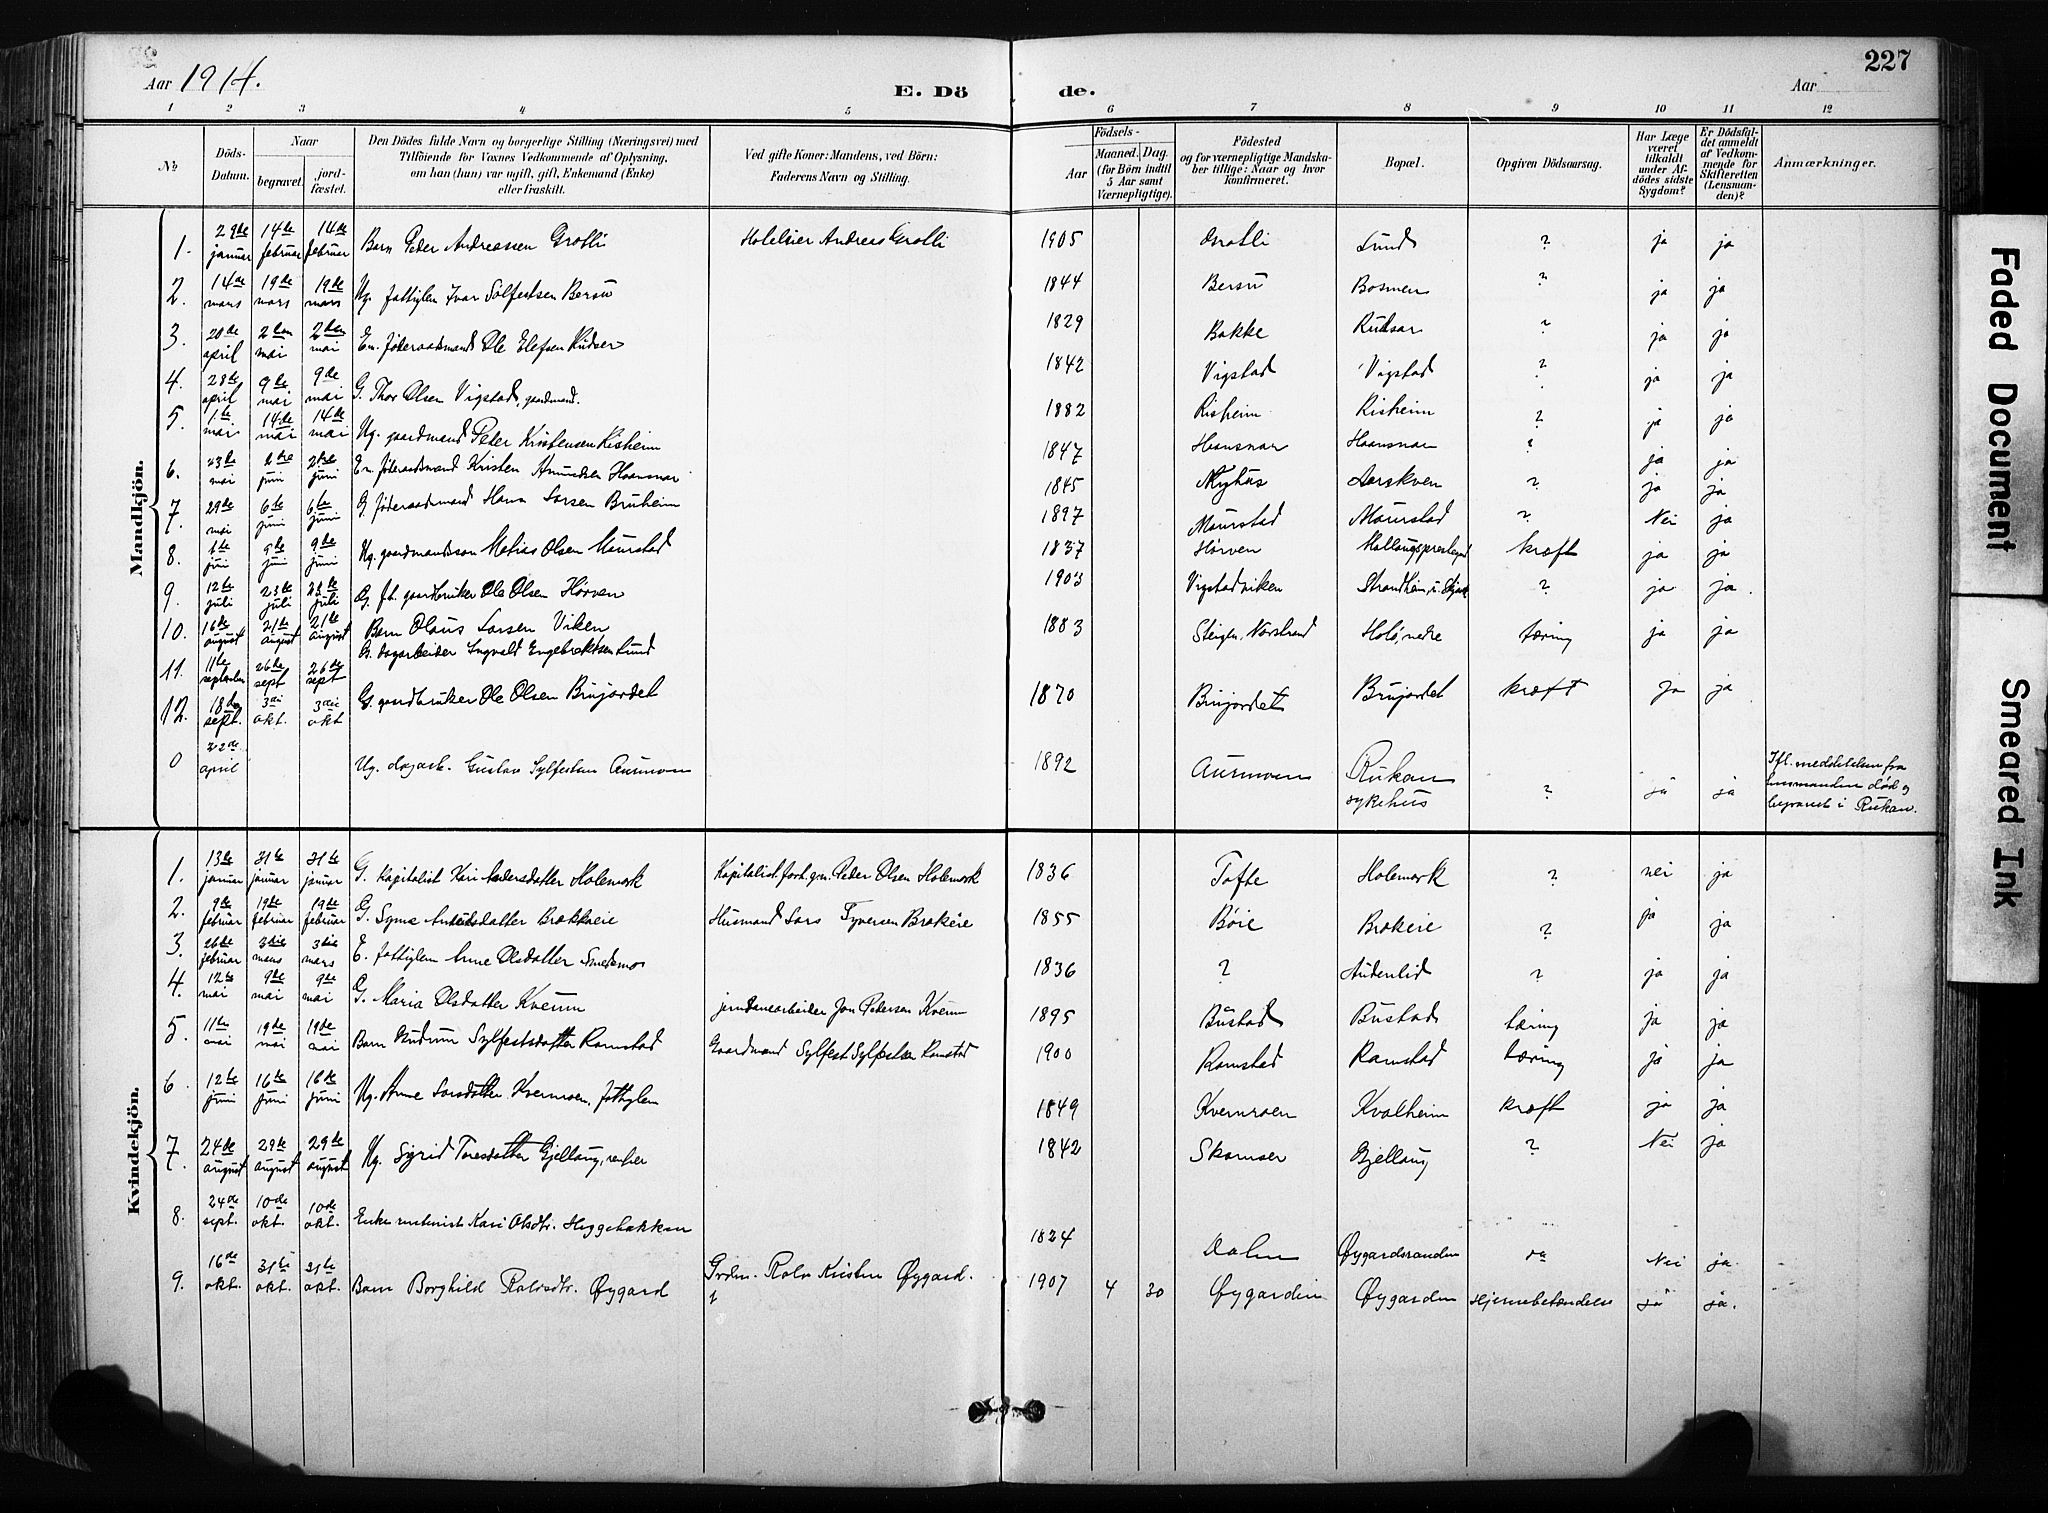 Aar 1914.
E. Döde.
Aar
227
1 2 3 4 5 6 7 8 9 10 11 12
№
Döds-Datum.
Naar
begravet.
jordfæstet.
Den Dödes fulde Navn og borgerlige Stilling (Næringsvei) med
Tilföiende for Voxnes Vedkommende af Oplysning,
om han (hun) var ugift, gift, Enkemand (Enke)
eller fraskilt.
Ved gifte Koner: Mandens, ved Börn:
Faderens Navn og Stilling.
Födsels-
Aar
Maaned. Dag.
(for Börn indtil
5 Aar samt
Værnepligtige).
Födested
og for værnepligtige Mandskaber tillige: Naar og hvor
konfirmeret.
Bopæl.
Opgiven Dödsaarsag.
Har Læge
været
tilkaldt
under Afdödes sidste
Sygdom?
Er Dödsfaldet anmeldt
af Vedkommende for
Skifteretten
(Lensmanden)?
Anmærkninger.
Mandkjön.
1. 29de januar 14de februar 14de februar Barn Peter Andreassen Grotli Hotelsier Andreas Grotli 1905 Grotli Lund ? ja ja
2. 14de mars 19de mars 19de mars Ug. fattiglem Ivar Solfestsen Bersu 1844 Bersu Bosmen ? ja ja
3. 20de april 2den mai 2den mai Em. føderaadsmand Ole Elefsen Rudsar 1829 Bakke Rudsar ? ja ja
4. 28de april 9de mai 9de mai G. Thor Olsen Vigstad, gaardmand. 1842 Vigstad Vigstad ? ja ja
5. 1ste mai 14de mai 14de mai Ug. gaardmand Peter Kristensen Risheim 1882 Risheim Risheim ? ja ja
6. 23de mai 2dre juni 2dre juni Em. føderaadsmand Kristen Amundsen Haansnar 1847 Haansnar Haansnar ? ja ja
7. 29de mai 6te juni 6te juni G. føderaadmand Hans Larsen Bruheim 1845 Nyhus Aarskven ? ja ja
8. 1ste juni 9de juni 9de juni Ug. gaardmandssøn Matias Olsen Maurstad 1897 Maurstad Maurstad ? Nei ja
9. 12te juli 23de juli 23de juli G. fh. gaardbruker Ole Olsen Hørven 1837 Hørven kræft ja ja
10. 16de august 21de august 21de august Barn Olaus Larsen Viken 1903 Vigstadviken Strandheim i Skjaak ? ja ja
11. 11te september 26de sept 26de sept G. dagarbeider Ingvald Engebrektsen Lund 1883 Steigen, Norstrand Holø, nedre tæring ja ja
12. 18de sept. 3die okt. 3die okt G. gaardbruker Ole Olsen Brujordet 1870 Brujordet Brujordet kræft ja ja
0 22de april Ug. dagarb. Gustav Sylfestsen Aurmoen 1892 Aurmoen Rukan sykehus ? ja ja Ifl. meddelelse fra lensmanden død og begravet i Rukan.
Kvindekjön.
1. 13de januar 31te januar 31te januar G. kapitalist Kari Andersdatter Holemork Kapitalist forh. gm. Peder Olsen Holemork 1836 Tofte Holemork ? nei ja
2. 9de februar 19de februar 19de februar G. Syne Amundsdatter Brækkeie Husmand Lars Syversen Brækeie 1855 Bøie Brækeie ? ja ja
3. 26de februar 3die mars 3die mars E. fattiglem Anne Olsdatter Smedsmo 1836 ? Audenlid ? ja ja
4. 12te mai 9de mai 9de mai G. Maria Olsdatter Kverun jernbanearbeider Jon Pedersen Kverun 1895 Bustad Bustad tæring ja ja
5. 11te mai 19de mai 19de mai Barn Gudrun Sylfestsdatter Ramstad Gaardmand Sylfest Sylfestsen Ramstad 1900 Ramstad Ramstad tæring ja ja
6. 12te juni 16de juni 16de juni Ug. Anne Larsdatter Kvernroen, fattiglem 1849 Kvernroen Kvalheim kræft ja ja
7. 24de august 29de august 29de august Ug. Sigrid Toresdatter Gjellaug, 1842 Skamsar Gjellaug ? Nei ja
8. 24de sept. 10de okt. 10de okt. Enke Kari Olsdtr. Heggebakken 1824 Dalen Øygardsranden Nei ja.
9. 16de okt. 31te okt. 31te okt. Barn Borghild Rolvsdtr. Øygard Grdm. Rolv Kristen Øygard. 1907 4 30 Øygarden Øygarden Hjernebetændelse ja ja.
Faded Document
Smeared Ink